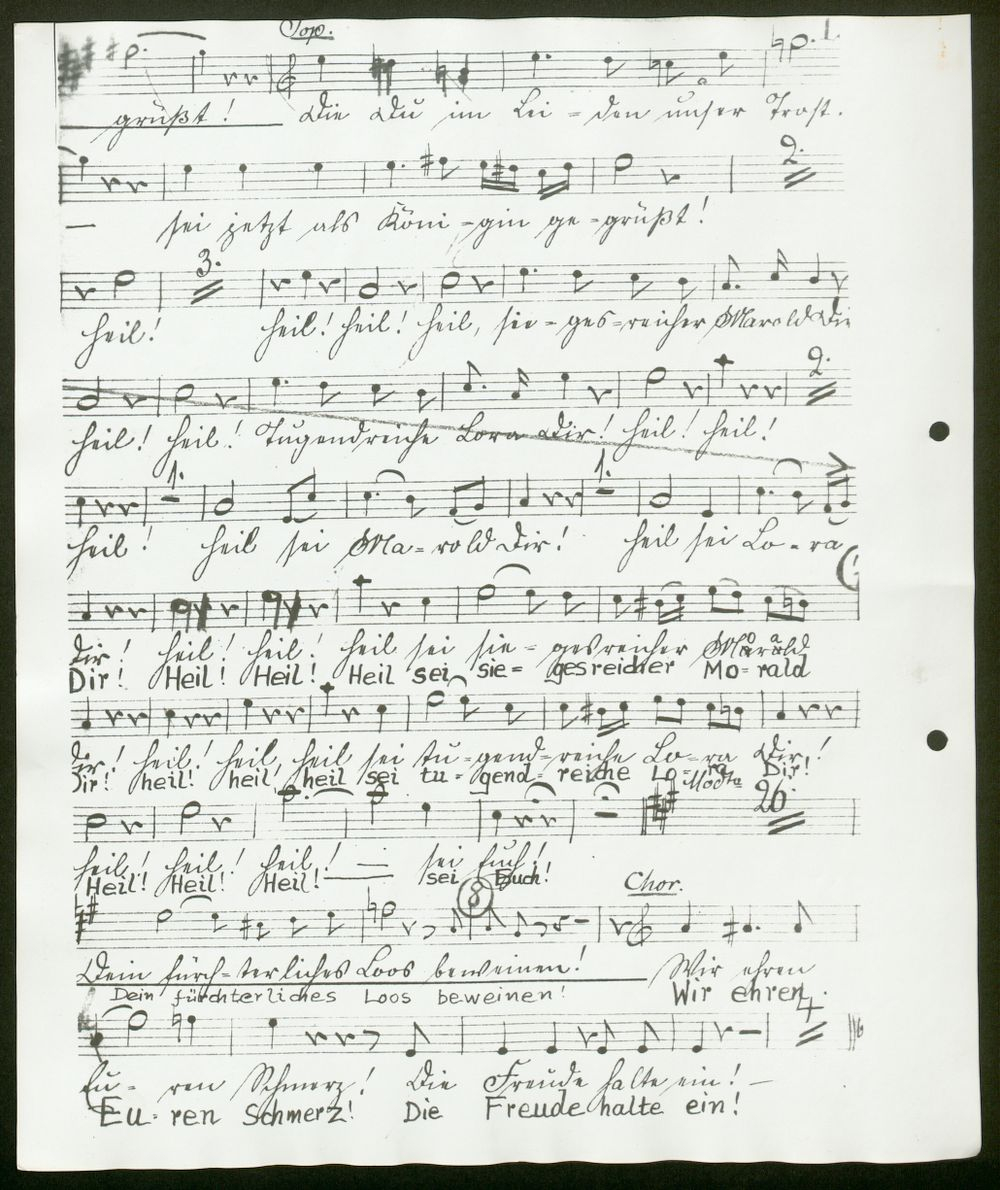 Sop.
grüßt! Die Du im Lei-den unser Trost.
2.
— sei jetzt als Köni-gin ge-grüßt!
3.
heil! heil! heil! heil, sie-ges-reicher Marold Die
2.
heil! heil! Tugendreiche Lora Dir! heil! heil!
1. 1.
heil! heil sei Ma-rold Dir! heil sei Lo-ra
Dir! heil! heil! heil sei sie-gesreicher Marald
Dir! Heil! Heil! Heil sei sie= gesreicher Mo=rald
Dir! heil! heil, heil sei tu-gend-reiche Lo-ra Dir!
Dir! heil! heil, heil sei tu-gend-reiche Lo-ra Dir!
Modto 26.
heil! heil! heil! — sei Euch!
Heil! Heil! Heil! — sei Euch!
8 Chor.
Dein fürch-terliches Loos beweinen! Wir ehren
Dein fürchterliches Loos beweinen! Wir ehren
4
Eu-ren Schmerz! Die Freude halte ein! —
Eu-ren Schmerz! Die Freude halte ein!